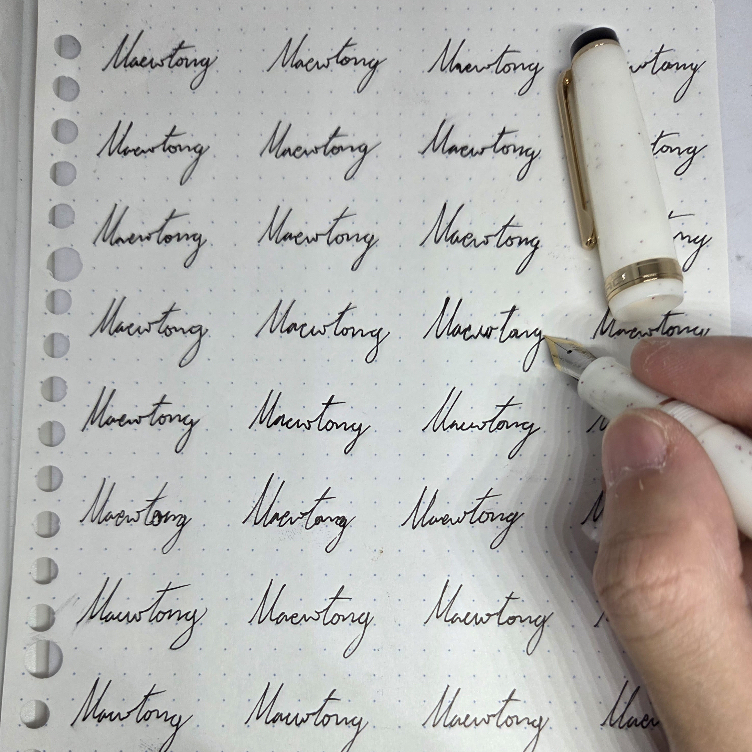 Maewtong Maewtong Maewtong
Maewtong Maewtong Maewtong
Maewtong Maewtong Maewtong
Maewtong Maewtong Maewtong Maewtong
Maewtong Maewtong Maewtong
Maewtong Maewtong Maewtong
Maewtong Maewtong Maewtong
Maewtong Maewtong Maewtong